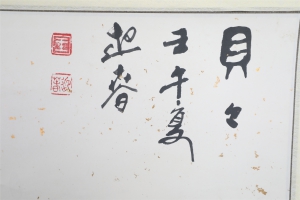 貝々
壬午夏
迎春